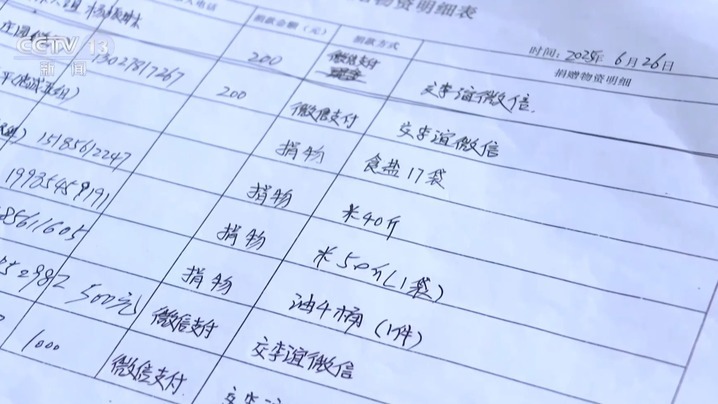 物资明细表
时间：2025年6月26日
电话 捐款金额（元） 捐款方式 捐赠物资明细
CCTV 13
新闻
13027817267 200 微信支付 交李谊微信.
200 微信支付 交李谊微信
15185612247 捐物 食盐17袋
19985459191 捐物 米40斤
85611605 捐物 米50斤（1袋）
捐物 油4桶（1件）
52982 500元 微信支付 交李谊微信
1000 微信支付